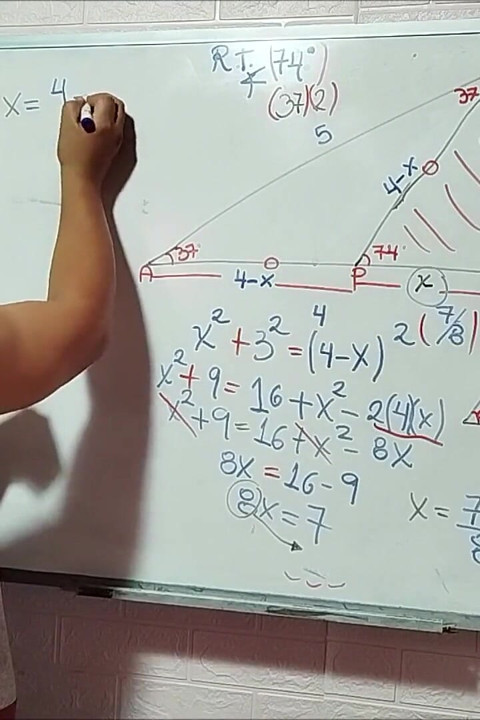 R.T. (74°)
(37)(2)
x = 4
5
37
4-x
37°
74°
A
P
4-x
x
4
x² + 3² = (4-x)
2(7/8)
x² + 9 = 16 + x² - 2(4)(x)
x² + 9 = 16 + x² - 8x
8x = 16 - 9
8x = 7
x = 7/8